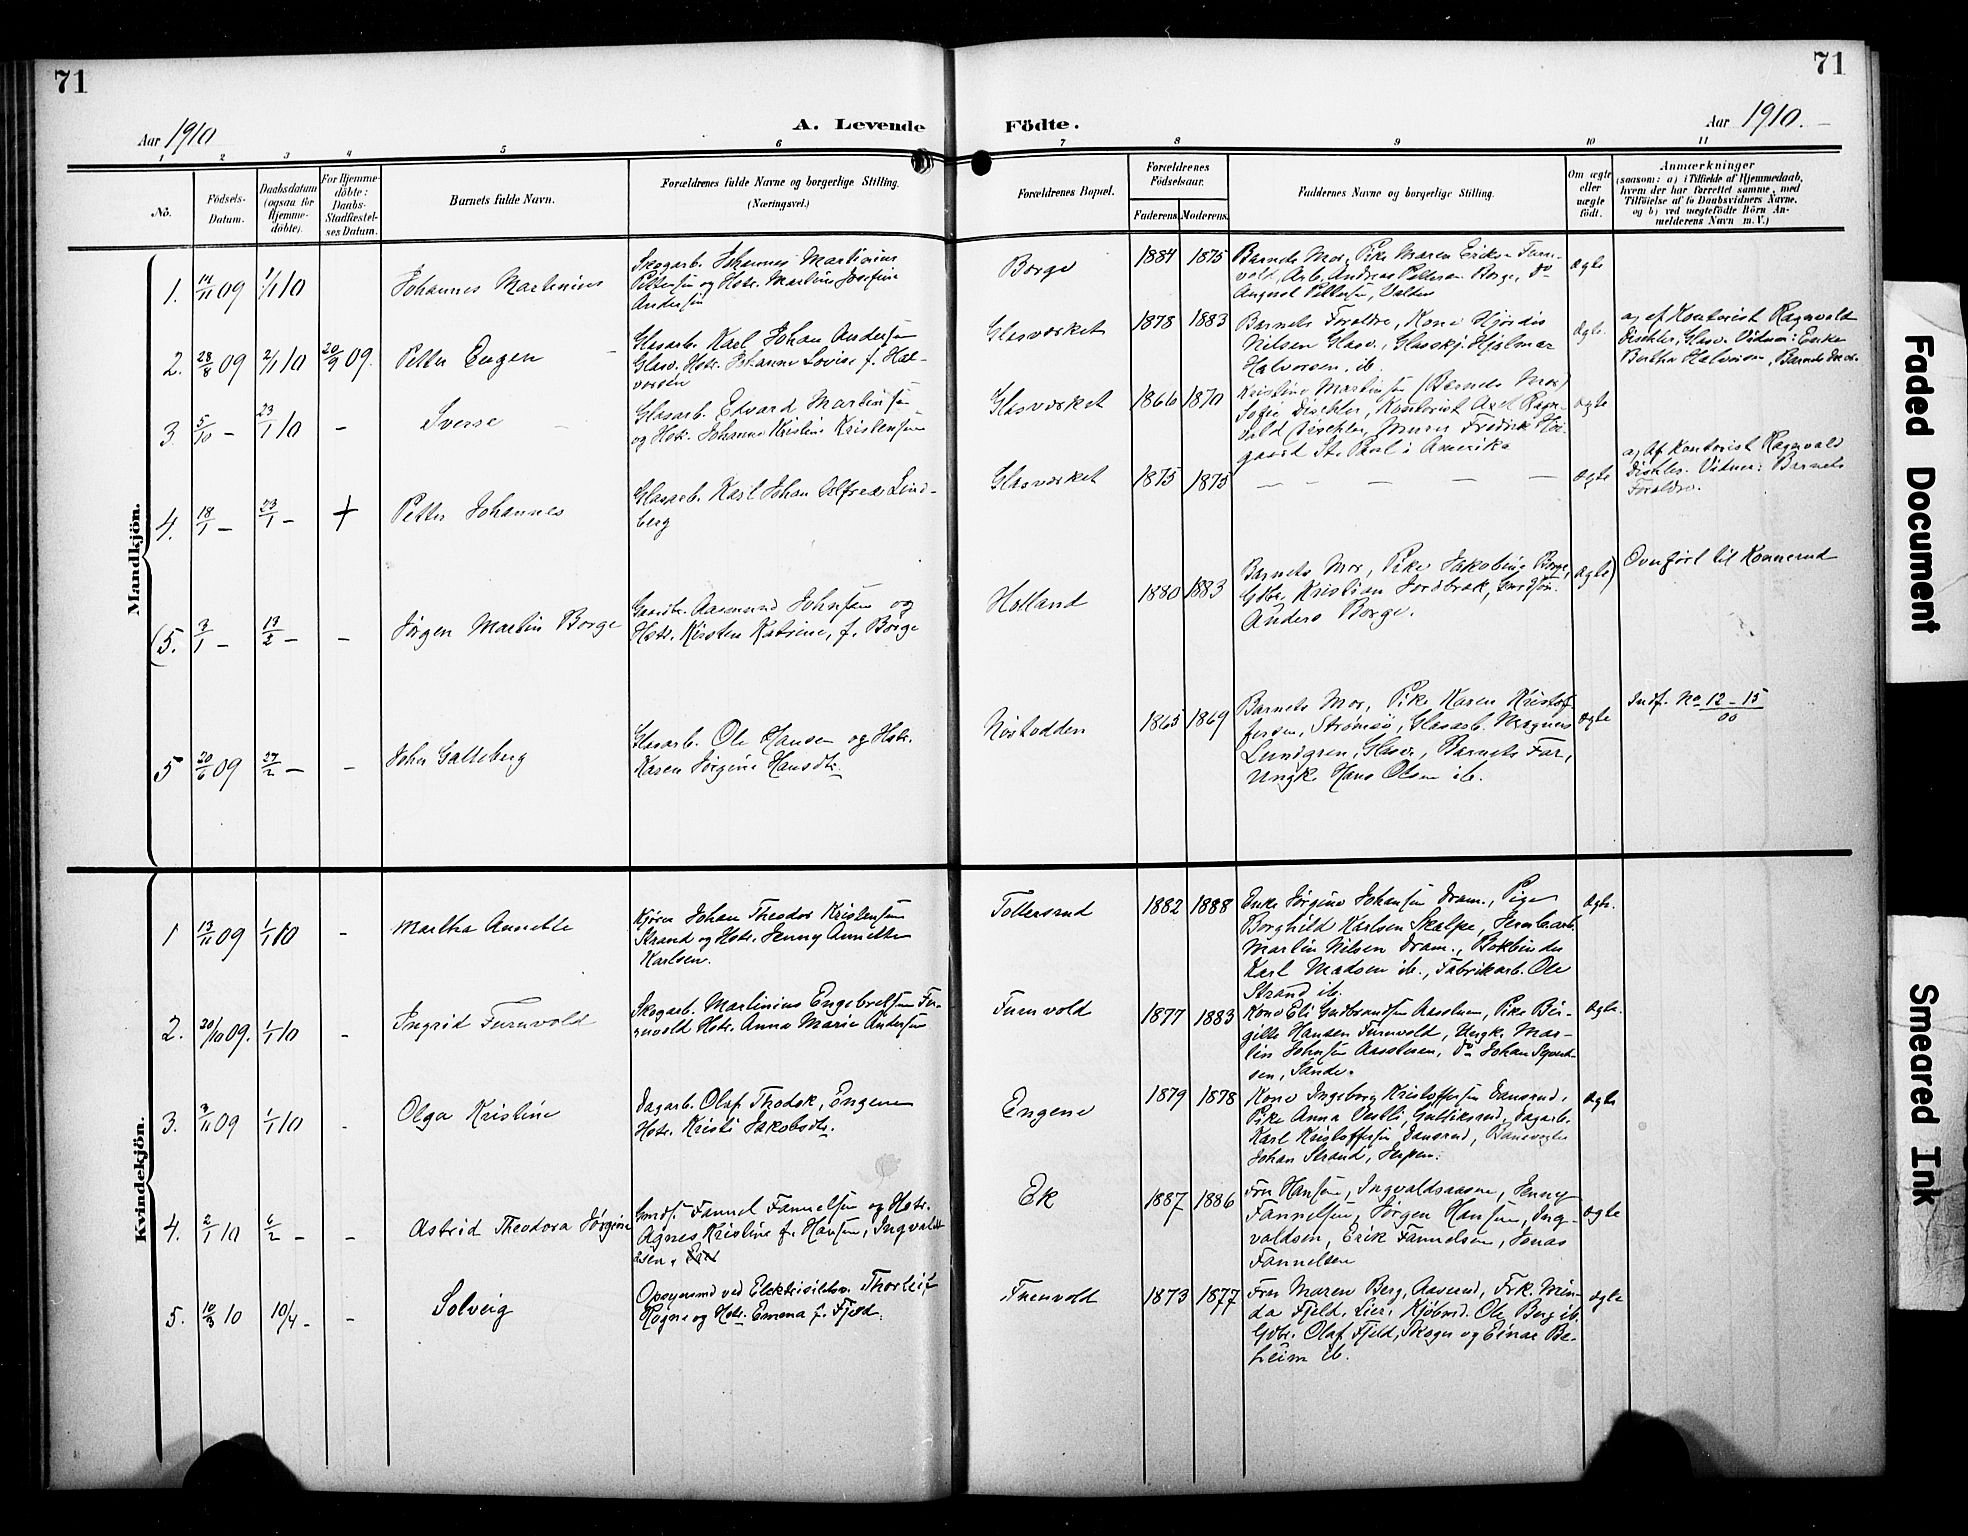 71
71
Aar 1910
A. Levende Födte.
Aar 1910.
1 2 3 4 5 6 7 8 9 10 11
No.
Födsels-
Datum.
Daabsdatum
(ogsaa for
Hjemme-
döbte).
For Hjemme-
döbte:
Daabs-
Stadfæstel-
ses Datum.
Barnets fulde Navn.
Forældrenes fulde Navne og borgerlige Stilling.
(Næringsvei.)
Forældrenes Bopæl.
Forældrenes
Födselsaar.
Faderens. Moderens.
Faddernes Navne og borgerlige Stilling.
Om ægte
eller
uægte
födt.
Anmærkninger
(saasom: a) i Tilfælde af Hjemmedaab,
hvem der har forrettet samme, med
Tilföielse af to Daabsvidners Navne,
og b) ved uægtefödte Börn An-
melderens Navn m. V.)
Mandkjön.
1. 14/11 09 1/1 10 Johannes Martinius
Skogarb. Johannes Martinius
Pettersen og Hstr. Martine Josefine
Andersen
Borge 1884 1875
Barnets Mor, Pike Maren Eriksen Furu-
vold, Arb. Andreas Pettersen Borge, Do
August Pettersen, Valden
ægte
2. 28/8 09 2/1 10 20/9 09. Petter Eugen
Glasarb. Karl Johan Andersen
Glasv. Hstr. Johanne Lovise f. Hal-
vorsen
Glasværket 1878 1883
Barnets Forældre, Kone Hjördis
Nilsen Glasv., Glasskj. Hjalmar
Halvorsen, ib.
ægte.
a, af Kontorist Ragnvald
Dischler, Glasv. Vidner: Enke
Bertha Halvorsen, Barnets Mor.
3 5/10 - 23/1 10 - Sverre
Glasarb. Edvard Martinsen
og Hstr. Johanne Kristine Kristensen
Glasværket 1866 1870
Kristine Martinsen (Barnets Mor)
Sofie Dischler, Kontorist Axel Ragn-
vald Dischler, Murer Fredrik Höi-
gaard St. Paul i Amerika
ægte
4. 18/1 - 23/1 - + Petter Johannes
Glasarb. Karl Johan Alfred Lind-
berg
Glasværket 1875 1875 - - - - -
ægte
a, Af Kontorist Ragnvald
Dischler. Vidner: Barnets
Forældre.
(5. 3/1 - 13/2 - - Jörgen Martin Borge
Gaardbr. Aasmund Johnsen og
Hstr. Kirsten Katrine, f. Borge
Holland 1880 1883
Barnets Mor, Pike Jakobine Borge,
Gdbr. Kristian Jordbræk,
Anders Borge.
ægte)
Overfört til Konnerud
5 20/6 09 27/2 - - John Galteberg
Glasarb. Ole Hansen og Hstr.
Karen Jörgine Hansdtr.
Nöstodden 1865 1869
Barnets Mor, Pike Karen Kristof-
fersen, Strömsö, Glasarb. Magnus
Lundgren, Glasv., Barnets Far,
Ungk. Hans Olsen ib.
ægte
Indf. No 12-15/00
Kvindekjön.
1 13/11 09 1/1 10 - Martha Annette
Kjörer Johan Theodor Kristensen
Strand og Hstr. Jenny Annette
Karlsen.
Tollerud 1882 1888
Enke Jörgine Johansen Dram., Pige
Borghild Karlsen Skalpe, Jernbarb.
Martin Nilsen Dram., Bokbinder
Karl Madsen ib., Fabrikarb. Ole
Strand ib.
ægte.
2. 20/10 09. 1/1 10 - Ingrid Furuvold
Skogarb. Martinius Engebretsen Fu-
ruvold Hstr. Anna Marie Andersen
Furuvold 1877 1883
Kone Eli Gudbrandsen Aasstuen, Pike Bir-
gitte Hansen Furuvold, Ungk. Mar-
tin Johnsen Aasstuen, Do Johan Syvert-
sen, Sande.
ægte.
3. 3/11 09 1/1 10 - Olga Kristine
Dagarb. Olaf Thodok, Engene
Hstr. Kristi Jakobsdtr.
Engene 1879 1878
Kone Ingeborg Kristoffersen Dansrud,
Pike Anna Vestli, Gulliksrud, Dagarb.
Karl Kristoffersen Dansrud, Banevogter
Johan Strand, Jerpen.
ægte
4. 2/1 10 6/2 - - Astrid Theodora Jörgine
Smeds. Fannel Fannelsen og Hstr.
Agnes Kristine f. Hansen, Ingvalds-
aasen,
Ek 1887 1886
Fru Hansen, Ingvaldsaasen, Jenny
Fannelsen, Jörgen Hansen, Ing-
valdsen, Erik Fannelsen, Jonas
Fannelsen
ægte
5. 10/3 10 10/4 - - Solveig
Opsynsmd ved Elektrisitetsv. Thorleif
Hogne og Hstr. Emma f. Fjeld.
Furuvold 1873 1877
Fru Maren Berg, Aaserud, Frk. Min-
da Fjeld, Lier, Kjöbmd. Ole Berg ib.
Gdbr. Olaf Fjeld, Skoger og Einar Be-
heim ib.
ægte
Faded Document
Smeared Ink